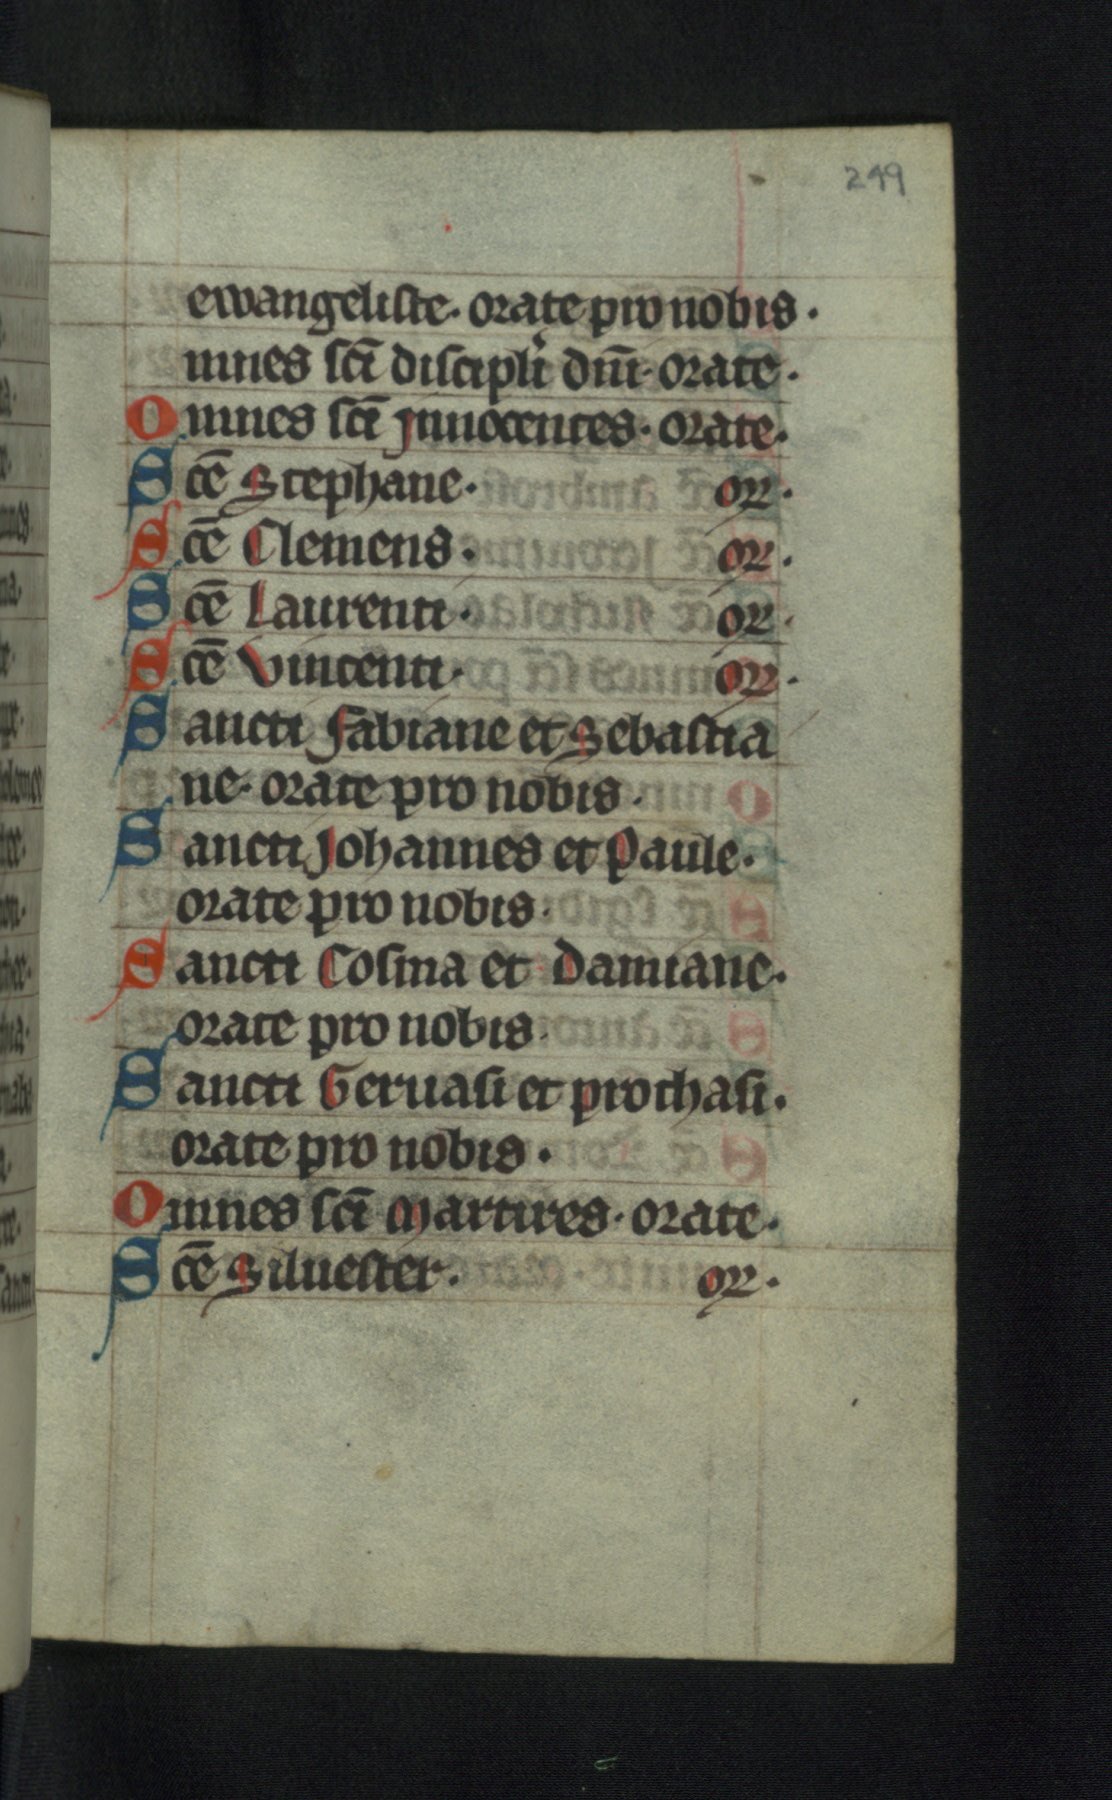 249
ewangeliste. orate pro nobis.
mnes sc̄i discipli dn̄i. orate.
Omnes sc̄i Innocentes. orate.
Sc̄e Stephane. or.
Sc̄e Clemens. or.
Sc̄e Laurenti. or.
Sc̄e Vincenti. or.
Sancti Fabiane et Sebastia
ne. orate pro nobis.
Sancti Johannes et Paule.
orate pro nobis.
Sancti Cosma et Damiane.
orate pro nobis.
Sancti Geruasi et prothasi.
orate pro nobis.
Omnes sc̄i Martires. orate.
Sc̄e Siluester. or.